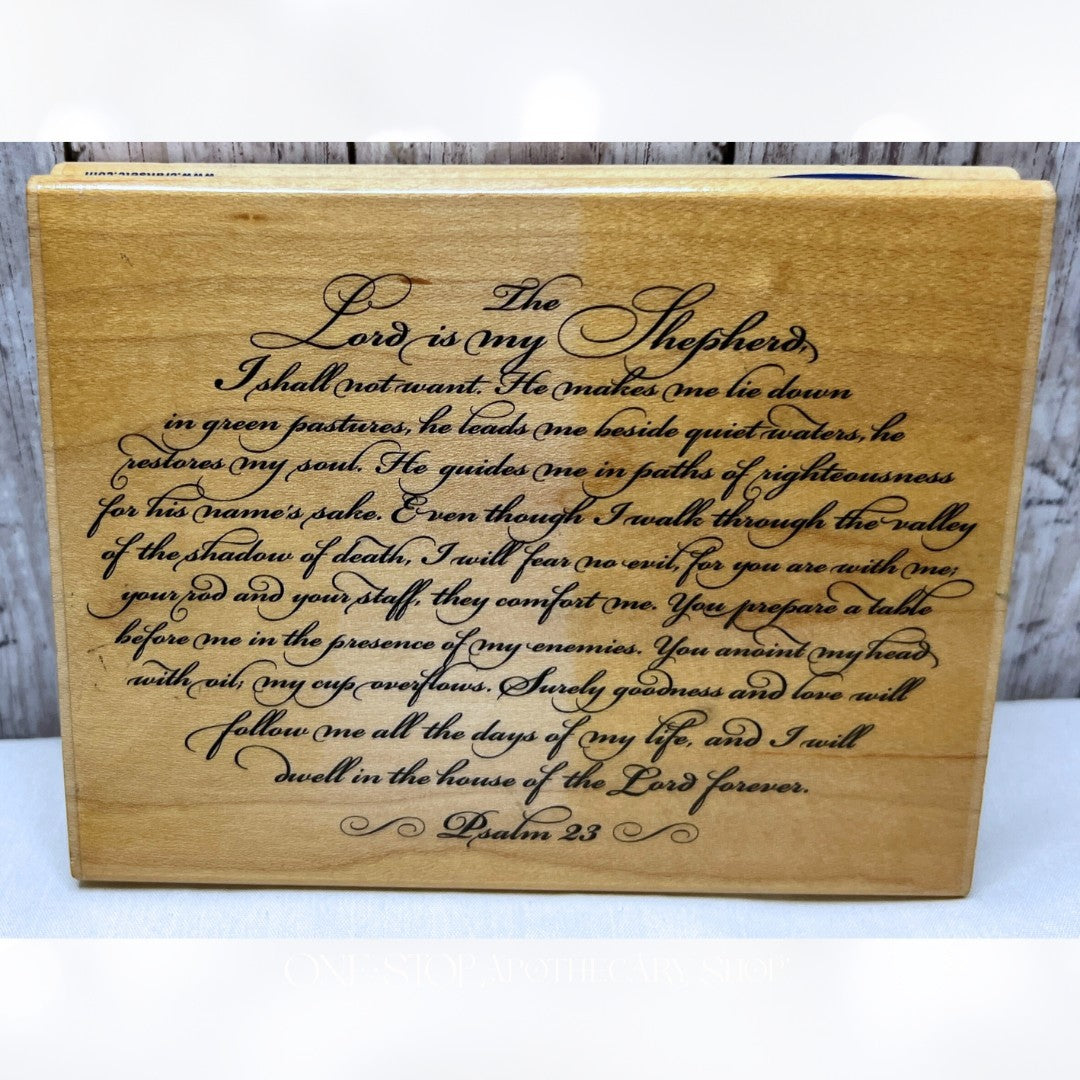 www.crafnsetc.com
The
Lord is my Shepherd,
I shall not want. He makes me lie down
in green pastures, he leads me beside quiet waters, he
restores my soul. He guides me in paths of righteousness
for his name's sake. Even though I walk through the valley
of the shadow of death, I will fear no evil, for you are with me;
your rod and your staff, they comfort me. You prepare a table
before me in the presence of my enemies. You anoint my head
with oil; my cup overflows. Surely goodness and love will
follow me all the days of my life, and I will
dwell in the house of the Lord forever.
Psalm 23
ONE STOP APOTHECARY SHOP